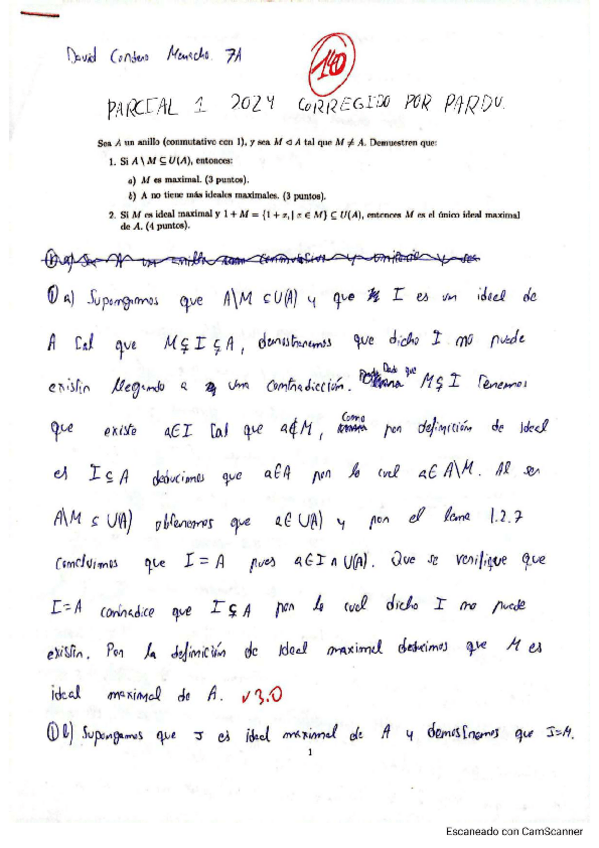 David Cordero Menacho. 7A
10
PARCIAL 1 2024 CORREGIDO POR PARDU.
Sea A un anillo (conmutativo con 1), y sea M ◁ A tal que M ≠ A. Demuestren que:
1. Si A \ M ⊆ U(A), entonces:
a) M es maximal. (3 puntos).
b) A no tiene más ideales maximales. (3 puntos).
2. Si M es ideal maximal y 1 + M = {1 + x, | x ∈ M} ⊆ U(A), entonces M es el único ideal maximal
de A. (4 puntos).
① a) Supongamos que A\M ⊂ U(A) y que I es un ideal de
A tal que M ⊊ I ⊊ A, demostraremos que dicho I no puede
existir llegando a una contradicción. Dado que M ⊊ I tenemos
que existe a∈I tal que a∉M, como por definición de ideal
es I ⊆ A deducimos que a∈A por lo cual a∈A\M. Al ser
A\M ⊆ U(A) obtenemos que a∈U(A) y por el lema 1.2.7
concluimos que I = A pues a∈I∩U(A). Que se verifique que
I=A contradice que I ⊊ A por lo cual dicho I no puede
existir. Por la definición de ideal maximal deducimos que M es
ideal maximal de A. ✓ 3.0
① b) Supongamos que J es ideal maximal de A y demostremos que J=M.
1
Escaneado con CamScanner